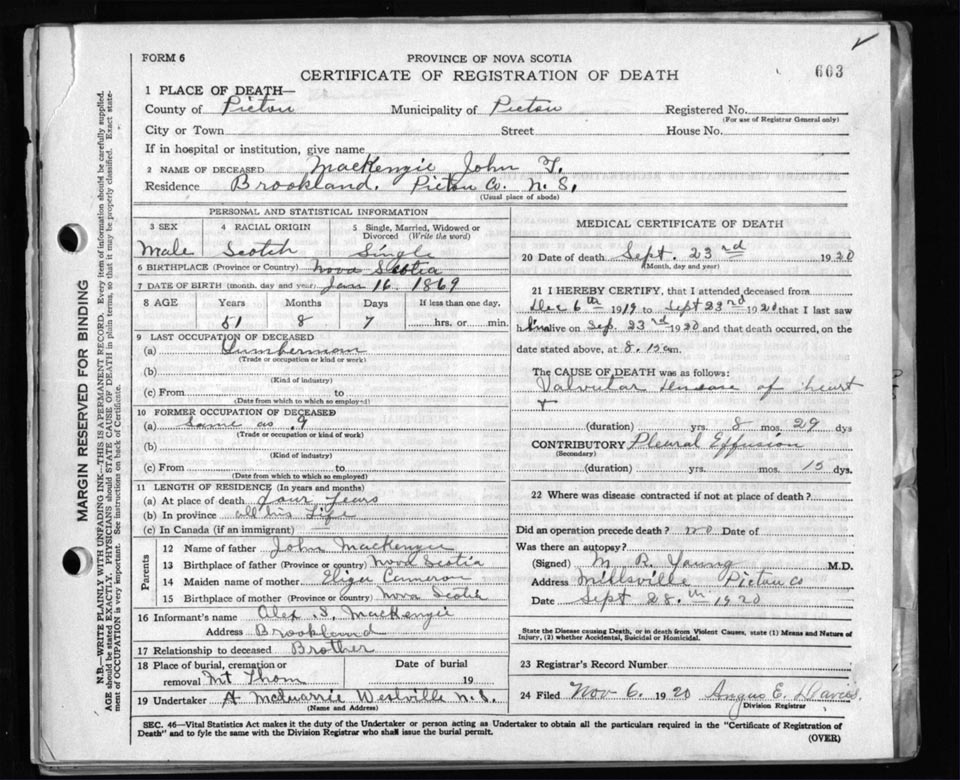 FORM 6
PROVINCE OF NOVA SCOTIA
603
CERTIFICATE OF REGISTRATION OF DEATH
1 PLACE OF DEATH—
County of Pictou Municipality of Pictou Registered No.
(For use of Registrar General only)
City or Town Street House No.
If in hospital or institution, give name
2 NAME OF DECEASED MacKenzie John F.
Residence Brookland. Pictou Co. N. S.
(Usual place of abode)
PERSONAL AND STATISTICAL INFORMATION
3 SEX 4 RACIAL ORIGIN 5 Single, Married, Widowed or Divorced (Write the word)
Male Scotch Single
6 BIRTHPLACE (Province or Country) Nova Scotia
7 DATE OF BIRTH (month, day and year) Jan 16. 1869
8 AGE Years Months Days If less than one day,
51 8 7 hrs. or min.
9 LAST OCCUPATION OF DECEASED
(a) Lumberman
(Trade or occupation or kind of work)
(b)
(Kind of industry)
(c) From to
(Date from which to which so employed)
10 FORMER OCCUPATION OF DECEASED
(a) Same as 9
(Trade or occupation or kind of work)
(b)
(Kind of industry)
(c) From to
(Date from which to which so employed)
11 LENGTH OF RESIDENCE (In years and months)
(a) At place of death four years
(b) In province all his Life
(c) In Canada (if an immigrant)
Parents
12 Name of father John MacKenzie
13 Birthplace of father (Province or country) Nova Scotia
14 Maiden name of mother Eliza Cameron
15 Birthplace of mother (Province or Country) Nova Scotia
16 Informant's name Alex S. MacKenzie
Address Brookland
17 Relationship to deceased Brother
18 Place of burial, cremation or removal Mt Thom Date of burial 19
19 Undertaker A McQuarrie Westville N. S.
(Name and Address)
MEDICAL CERTIFICATE OF DEATH
20 Date of death Sept. 23rd 1920
(Month, day and year)
21 I HEREBY CERTIFY, that I attended deceased from
Dec 6th 1919 to Sept 23rd 1920 that I last saw
him alive on Sep. 23rd 1920 and that death occurred, on the
date stated above, at 8.15 am.
The CAUSE OF DEATH was as follows:
Valvular disease of heart
(duration) yrs. 8 mos. 29 dys
CONTRIBUTORY Pleural Effusion
(Secondary)
(duration) yrs. mos. 15 dys.
22 Where was disease contracted if not at place of death?
Did an operation precede death? no Date of
Was there an autopsy?
(Signed) M. R. Young M.D.
Address Millsville Pictou Co
Date Sept 28.th 1920
State the Disease causing Death, or in death from Violent Causes, state (1) Means and Nature of
Injury, (2) whether Accidental, Suicidal or Homicidal.
23 Registrar's Record Number
24 Filed Nov 6. 1920 Angus E. Davies.
Division Registrar
SEC. 46—Vital Statistics Act makes it the duty of the Undertaker or person acting as Undertaker to obtain all the particulars required in the "Certificate of Registration of
Death" and to fyle the same with the Division Registrar who shall issue the burial permit.
(OVER)
MARGIN RESERVED FOR BINDING
N.B.—WRITE PLAINLY WITH UNFADING INK—THIS IS A PERMANENT RECORD. Every item of information should be carefully supplied.
AGE should be stated EXACTLY. PHYSICIANS should STATE CAUSE OF DEATH in plain terms, so that it may be properly classified. Exact state-
ment of OCCUPATION is very important. See instructions on back of Certificate.